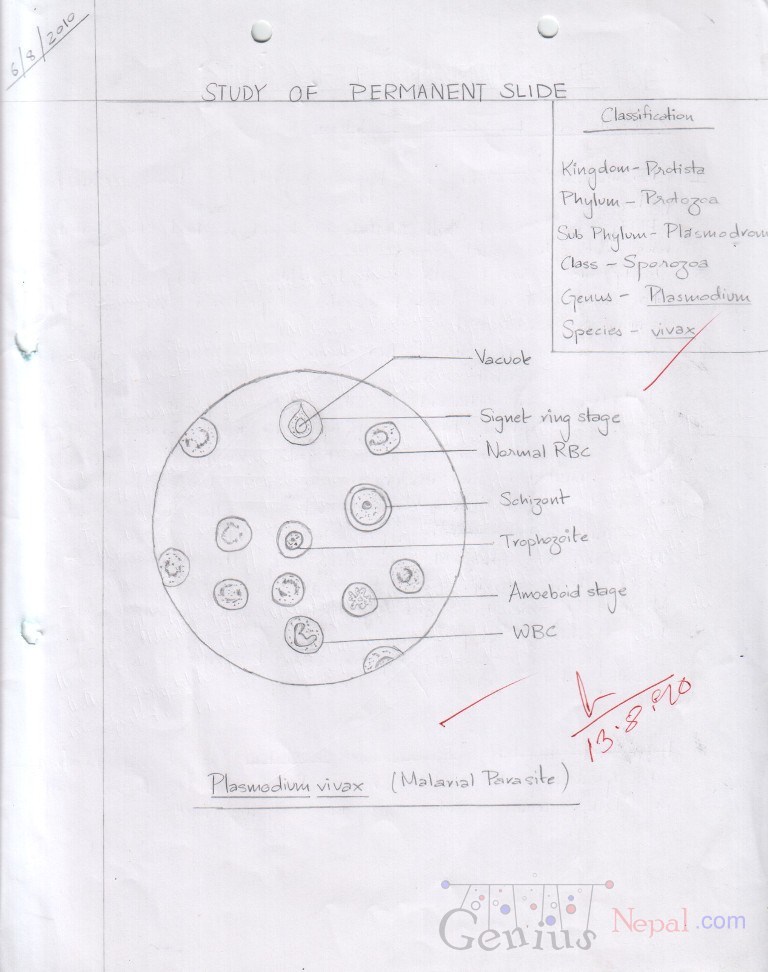 6/8/2010
STUDY OF PERMANENT SLIDE
Classification
Kingdom - Protista
Phylum - Protozoa
Sub Phylum - Plasmodrom
Class - Sporozoa
Genus - Plasmodium
Species - vivax
Vacuole
Signet ring stage
Normal RBC
Schizont
Trophozoite
Amoeboid stage
WBC
13.8.2010
Plasmodium vivax (Malarial Parasite)
Genius Nepal.com